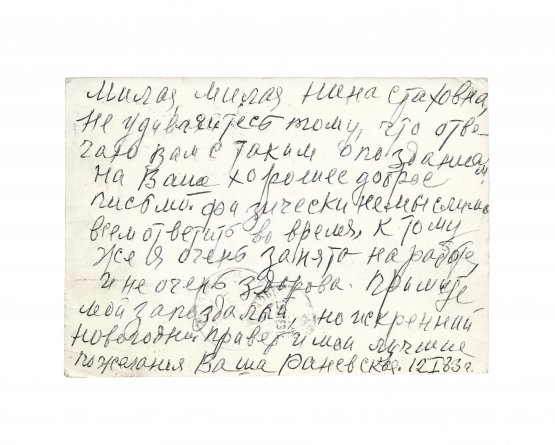 Милая, милая Нина Стаховна,
Не удивляйтесь тому, что отве-
чаю вам с таким опозданием
на Ваше хорошее доброе
письмо. Физически немыслимо
всем ответить во время, к тому
же я очень занята на работе,
и не очень здорова. Примите
мой запоздалый, но искренний
новогодний привет и мои лучшие
пожелания Ваша Раневская. 12 I 63 г.